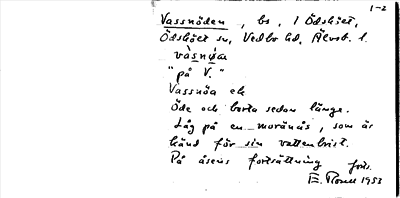 1-2
Vassnöden, bs, i Ödskölt,
Ödskölt sn, Vedbo hd, Älvsb. l.
vàsnǿa
"på V."
Vassnöa ek
Öde och borta sedan länge.
Låg på en moränås, som är
känd för sin vattenbrist.
På åsens fortsättning forts.
E. 1953